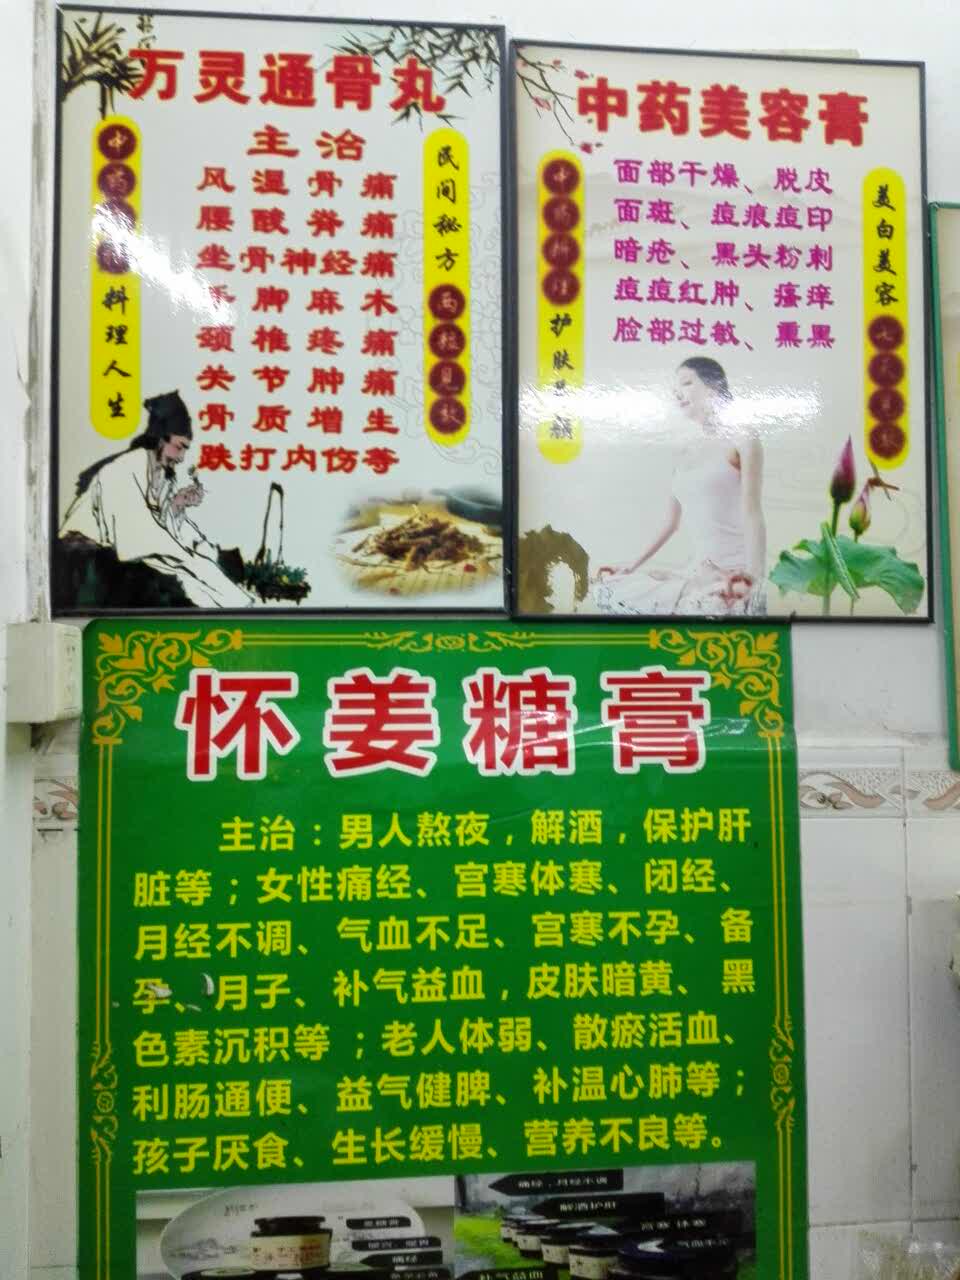 万灵通骨丸
主治
风湿骨痛
腰酸脊痛
坐骨神经痛
手脚麻木
颈椎疼痛
关节肿痛
骨质增生
跌打内伤等
中药
料理人生
民间秘方
两粒见效
中药美容膏
面部干燥、脱皮
面斑、痘痕痘印
暗疮、黑头粉刺
痘痘红肿、瘙痒
脸部过敏、熏黑
中药
护肤
美白美容
七天见效
怀姜糖膏
主治：男人熬夜，解酒，保护肝
脏等；女性痛经、宫寒体寒、闭经、
月经不调、气血不足、宫寒不孕、备
孕、月子、补气益血，皮肤暗黄、黑
色素沉积等；老人体弱、散瘀活血、
利肠通便、益气健脾、补温心肺等；
孩子厌食、生长缓慢、营养不良等。
痛经，月经不调
解酒护肝
宫寒体寒
气血不足
补气益血
黑糖膏
痛经